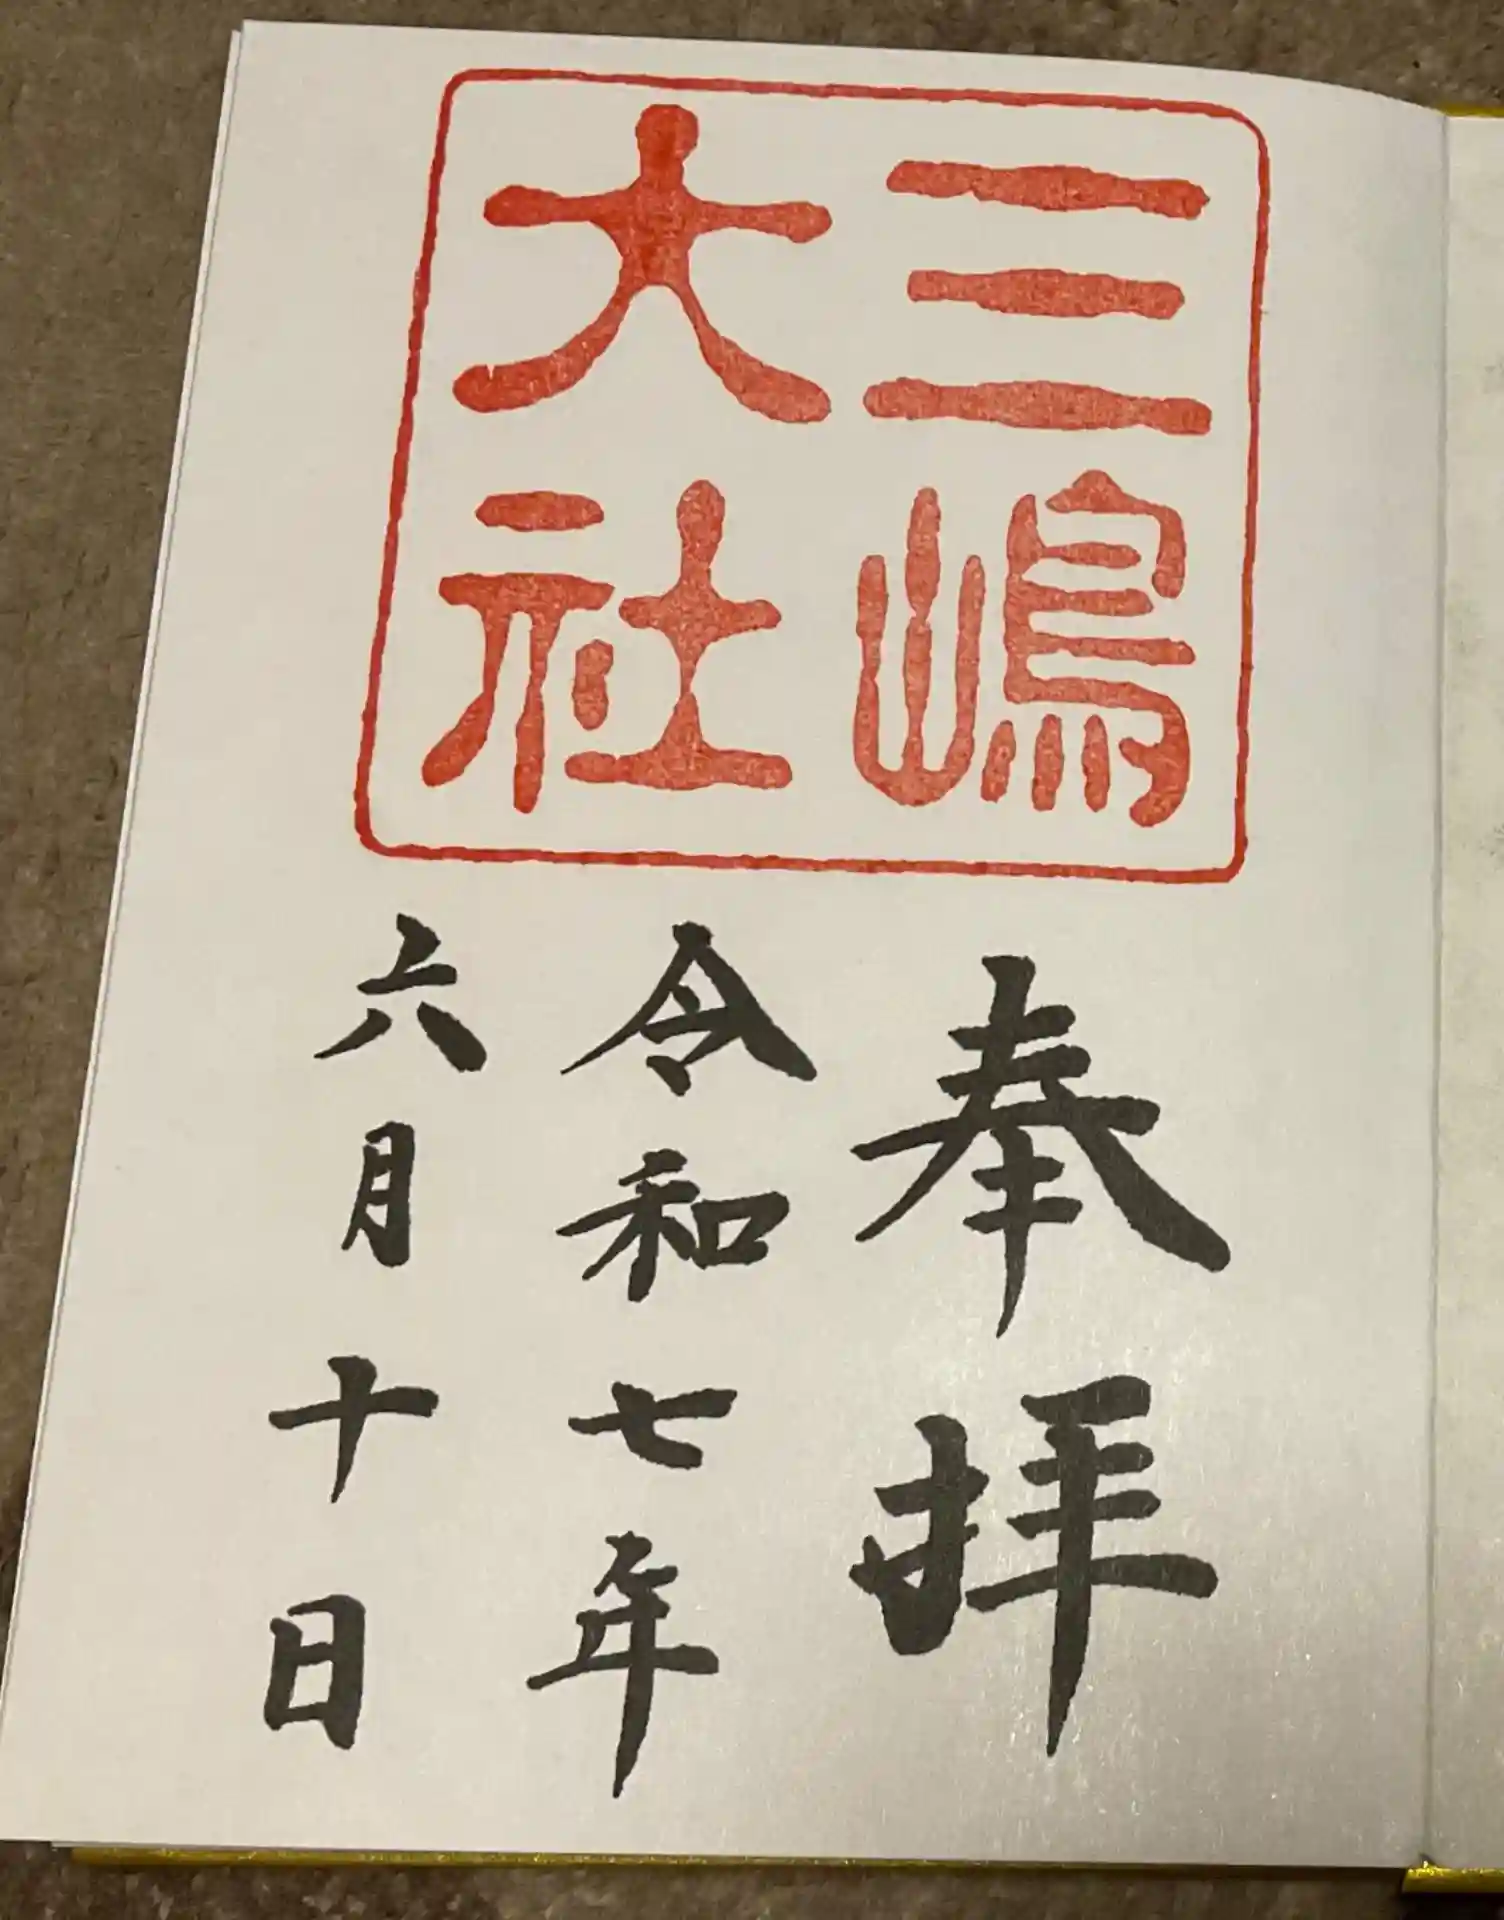 三嶋
大社
奉拝
令和七年
六月十日